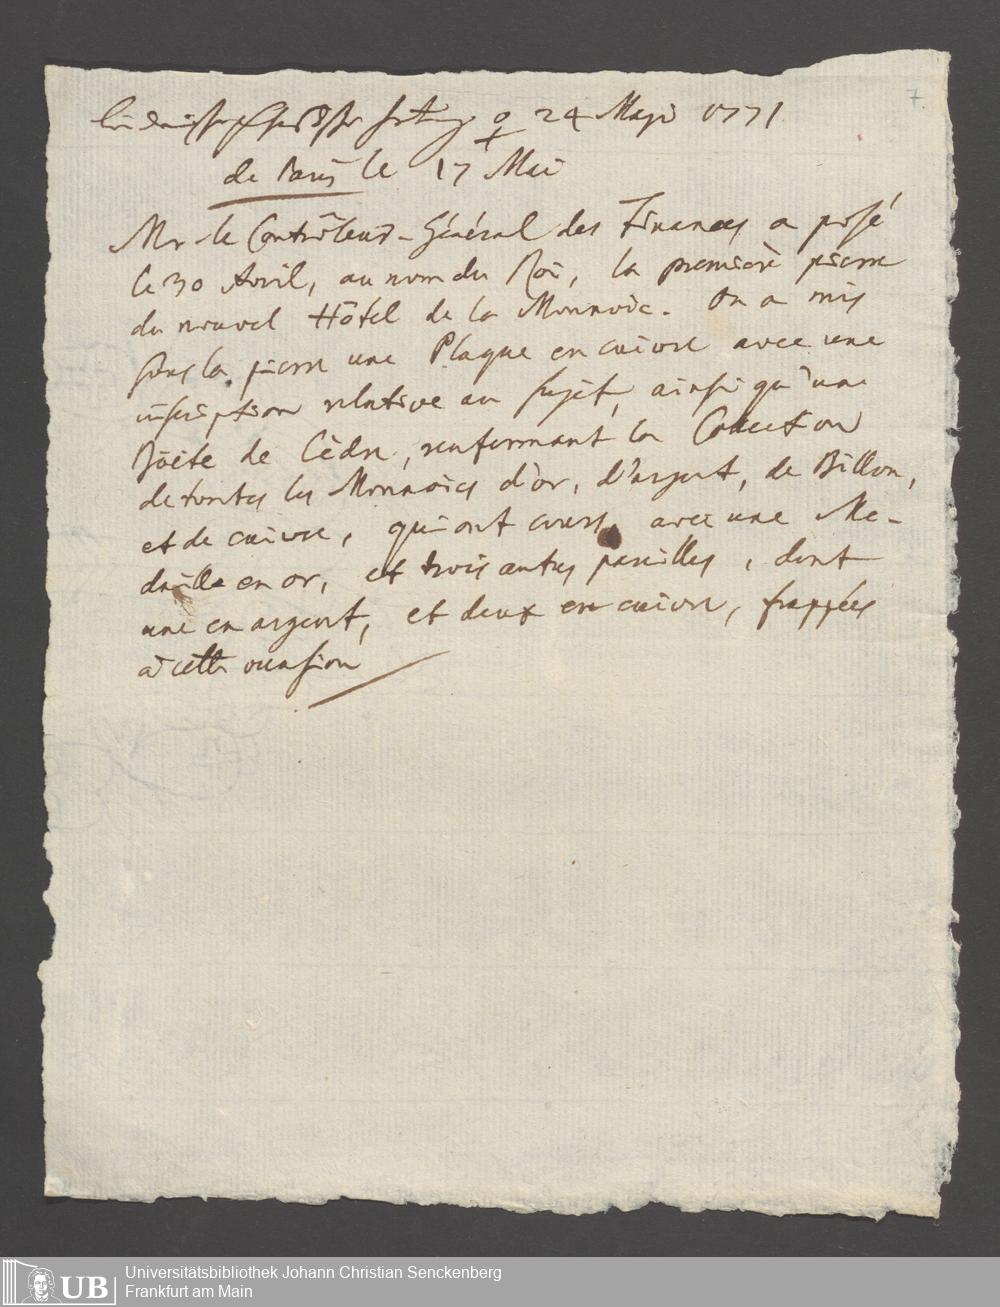 7.
♀ 24 Maji 1771
de Paris le 17 Mai
Mr le Contrôleur-Général des Finances a posé
le 30 Avril, au nom du Roi, la premiere pierre
du nouvel Hôtel de la Monnoie. On a mis
sous la pierre une Plaque en cuivre avec une
inscription relative au sujet, ainsi qu'une
Boëte de Cèdre, renfermant la Collection
de toutes les Monnoies d'or, d'argent, de Billon,
et de cuivre, qui ont cours, avec une Me-
daille en or, et trois autres pareilles, dont
une en argent, et deux en cuivre, frappées
à cette occasion
UB Universitätsbibliothek Johann Christian Senckenberg
Frankfurt am Main